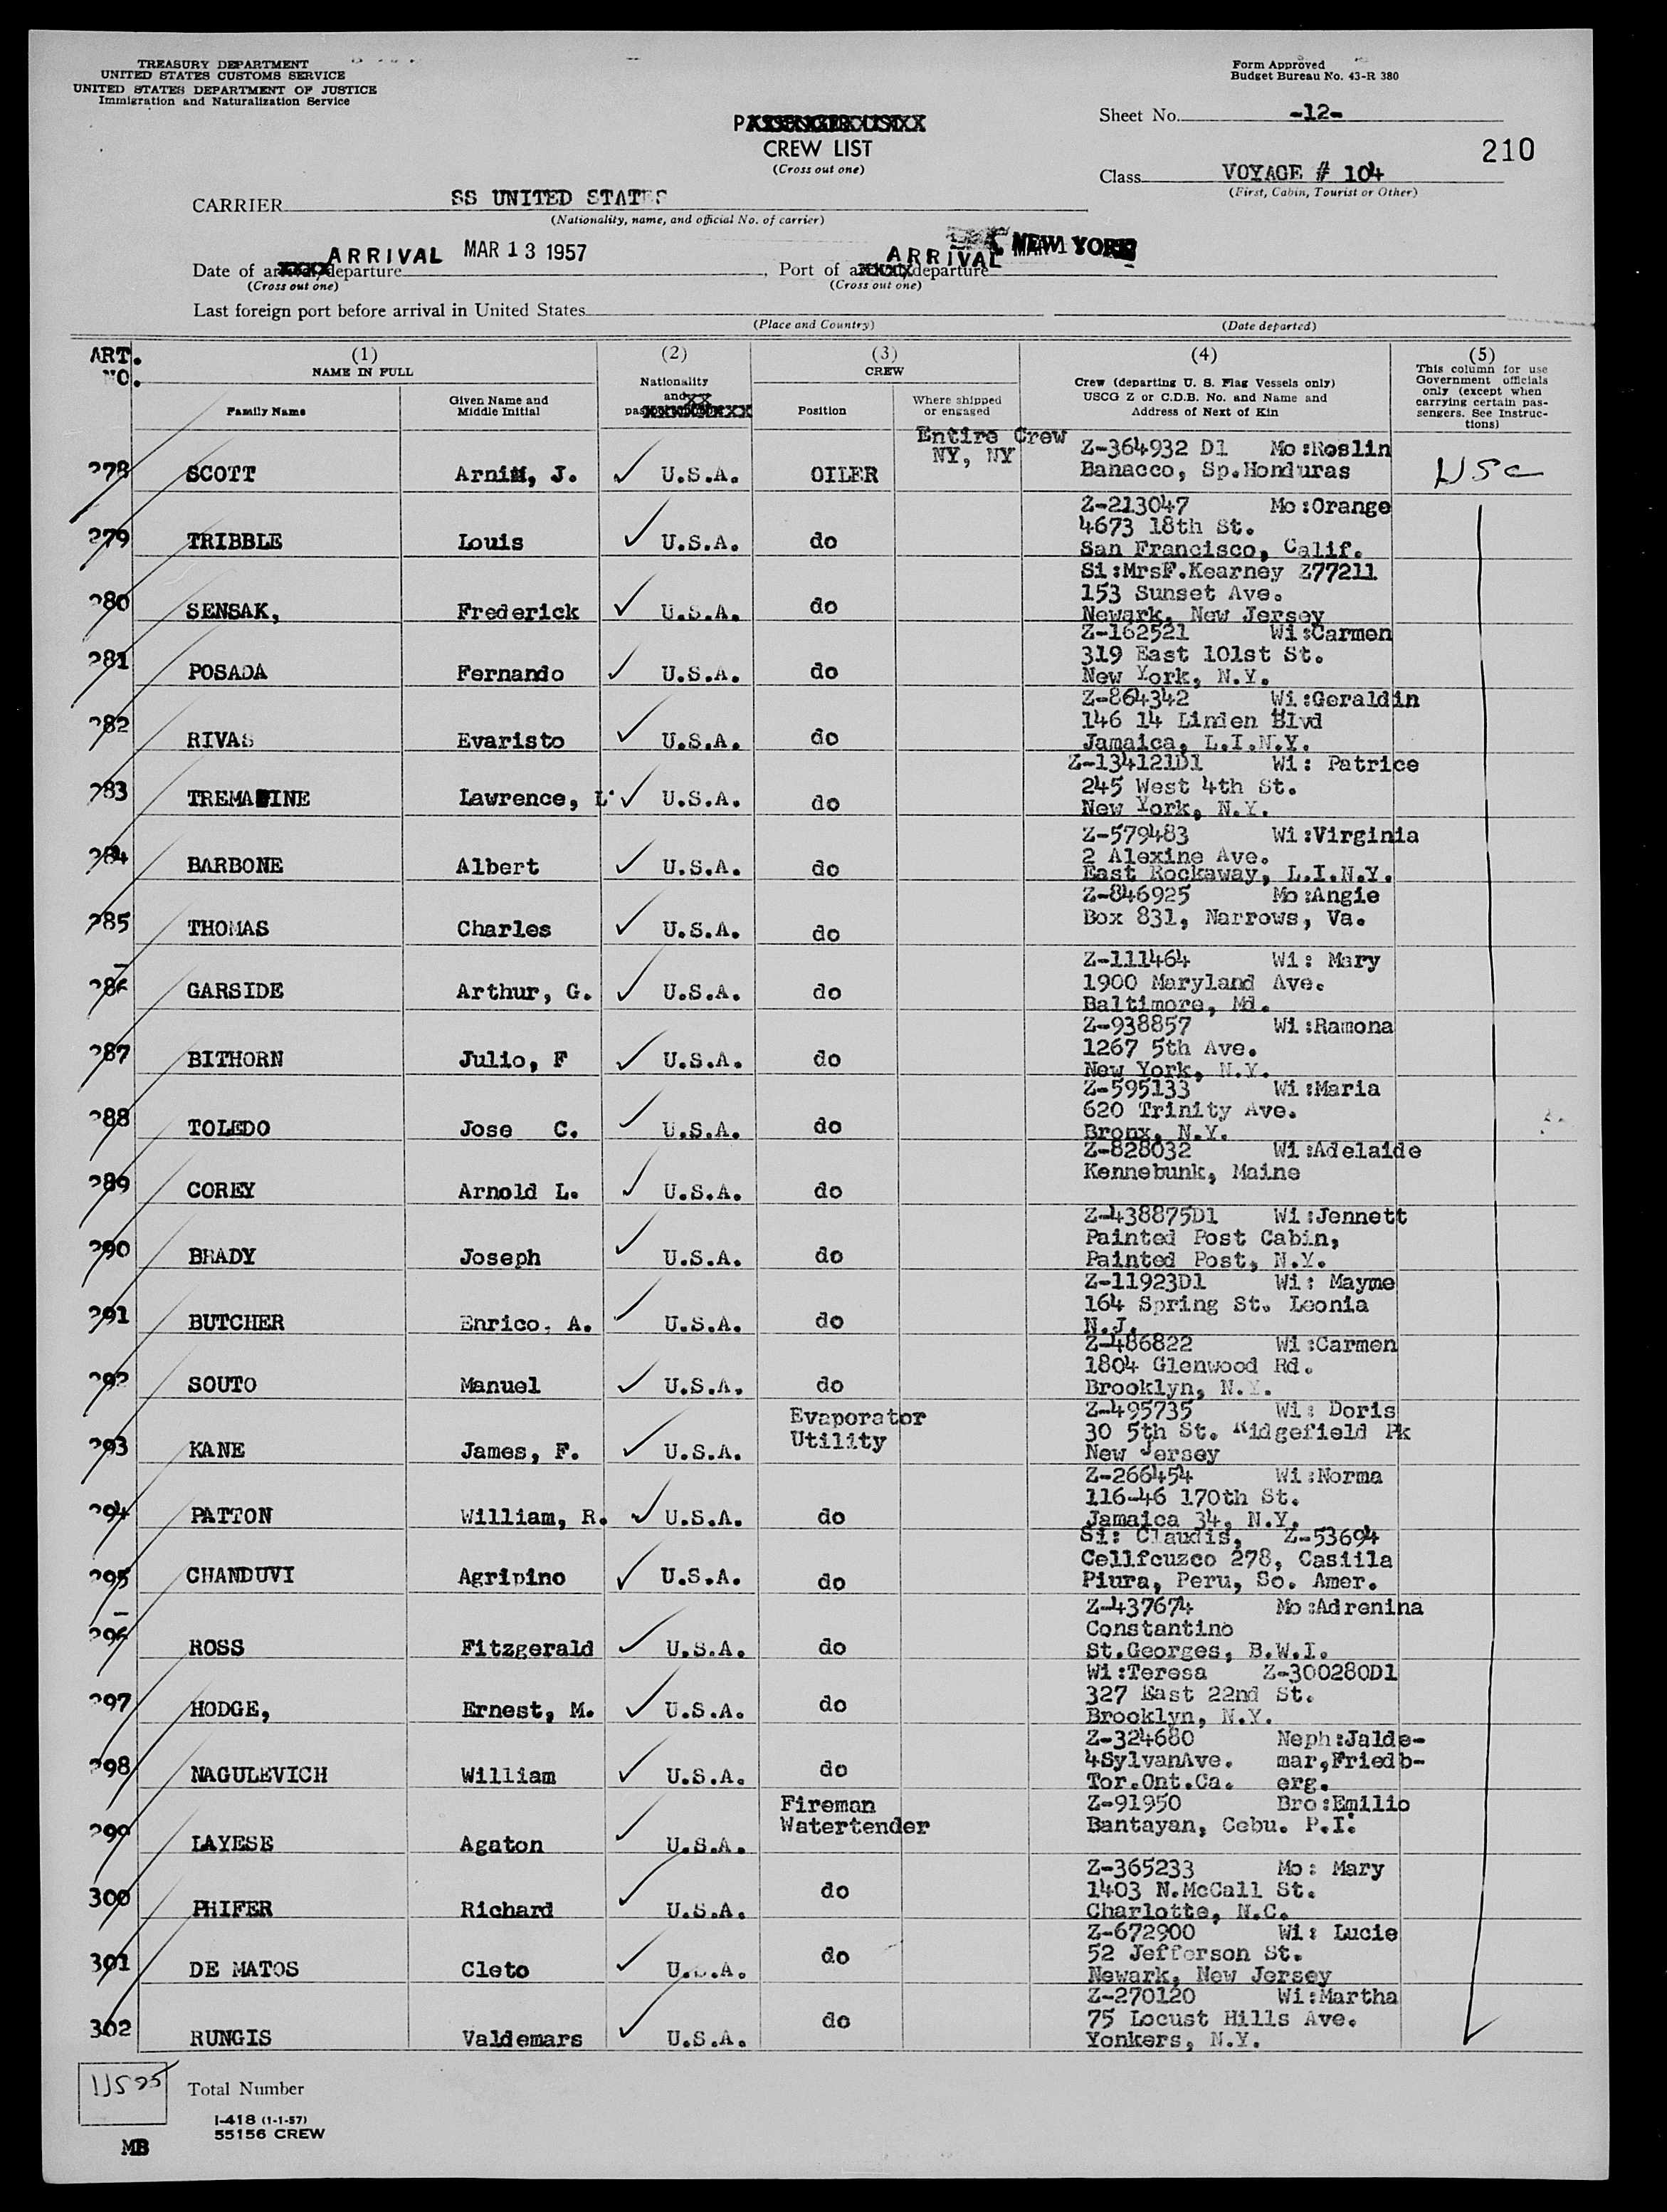 TREASURY DEPARTMENT
UNITED STATES CUSTOMS SERVICE
UNITED STATES DEPARTMENT OF JUSTICE
Immigration and Naturalization Service
Form Approved
Budget Bureau No. 43-R 380
CREW LIST
(Cross out one)
Sheet No. -12-
210
Class VOYAGE # 104
(First, Cabin, Tourist or Other)
CARRIER SS UNITED STATES
(Nationality, name, and official No. of carrier)
ARRIVAL MAR 13 1957 ARRIVAL NEW YORK
Date of departure Port of departure
(Cross out one) (Cross out one)
Last foreign port before arrival in United States
(Place and Country) (Date departed)
ART. NO.
(1) NAME IN FULL
Family Name
Given Name and Middle Initial
(2) Nationality and
(3) CREW
Position
Where shipped or engaged
(4) Crew (departing U. S. Flag Vessels only) USCG Z or C.D.B. No. and Name and Address of Next of Kin
(5) This column for use Government officials only (except when carrying certain passengers. See Instructions)
Entire Crew
NY, NY
278 SCOTT Arnim, J. U.S.A. OILER Z-364932 D1 Mo:Roslin USC
Banacco, Sp.Honduras
279 TRIBBLE Louis U.S.A. do Z-213047 Mo:Orange
4673 18th St.
San Francisco, Calif.
280 SENSAK, Frederick U.S.A. do Si:MrsF.Kearney Z77211
153 Sunset Ave.
Newark, New Jersey
281 POSADA Fernando U.S.A. do Z-162521 Wi:Carmen
319 East 101st St.
New York, N.Y.
282 RIVAS Evaristo U.S.A. do Z-864342 Wi:Geraldin
146 14 Linden Blvd
Jamaica, L.I.N.Y.
283 Lawrence, L. U.S.A. do Z-134121D1 Wi: Patrice
245 West 4th St.
New York, N.Y.
284 BARBONE Albert U.S.A. do Z-579483 Wi:Virginia
2 Alexine Ave.
East Rockaway, L.I.N.Y.
285 THOMAS Charles U.S.A. do Z-846925 Mo:Angie
Box 831, Narrows, Va.
286 GARSIDE Arthur, G. U.S.A. do Z-111464 Wi: Mary
1900 Maryland Ave.
Baltimore, Md.
287 BITHORN Julio, F U.S.A. do Z-938857 Wi:Ramona
1267 5th Ave.
New York, N.Y.
288 TOLEDO Jose C. U.S.A. do Z-595133 Wi:Maria
620 Trinity Ave.
Bronx, N.Y.
289 COREY Arnold L. U.S.A. do Z-828032 Wi:Adelaide
Kennebunk, Maine
290 BRADY Joseph U.S.A. do Z-438875D1 Wi:Jennett
Painted Post Cabin,
Painted Post, N.Y.
291 BUTCHER Enrico, A. U.S.A. do Z-11923D1 Wi: Mayme
164 Spring St. Leonia
N.J.
292 SOUTO Manuel U.S.A. do Z-486822 Wi:Carmen
1804 Glenwood Rd.
Brooklyn, N.Y.
293 KANE James, F. U.S.A. Evaporator Utility Z-495735 Wi: Doris
30 5th St. Ridgefield Pk
New Jersey
294 PATTON William, R. U.S.A. do Z-266454 Wi:Norma
116-46 170th St.
Jamaica 34, N.Y.
295 CHANDUVI Agripino U.S.A. do Si: Claudis, Z-53694
Cellfcuzco 278, Casiila
Piura, Peru, So. Amer.
296 ROSS Fitzgerald U.S.A. do Z-437674 Mo:Adrenina
Constantino
St.Georges, B.W.I.
297 HODGE, Ernest, M. U.S.A. do Wi:Teresa Z-300280D1
327 East 22nd St.
Brooklyn, N.Y.
298 NAGULEVICH William U.S.A. do Z-324680 Neph:Jalde-
4SylvanAve. mar,Friedb-
Tor.Ont.Ca. erg.
299 LAYESE Agaton U.S.A. Fireman Watertender Z-91950 Bro:Emilio
Bantayan, Cebu. P.I.
300 PHIFER Richard U.S.A. do Z-365233 Mo: Mary
1403 N.McCall St.
Charlotte, N.C.
301 DE MATOS Cleto U.S.A. do Z-672900 Wi: Lucie
52 Jefferson St.
Newark, New Jersey
302 RUNGIS Valdemars U.S.A. do Z-270120 Wi:Martha
75 Locust Hills Ave.
Yonkers, N.Y.
US 25 Total Number
I-418 (1-1-57)
55156 CREW
MB